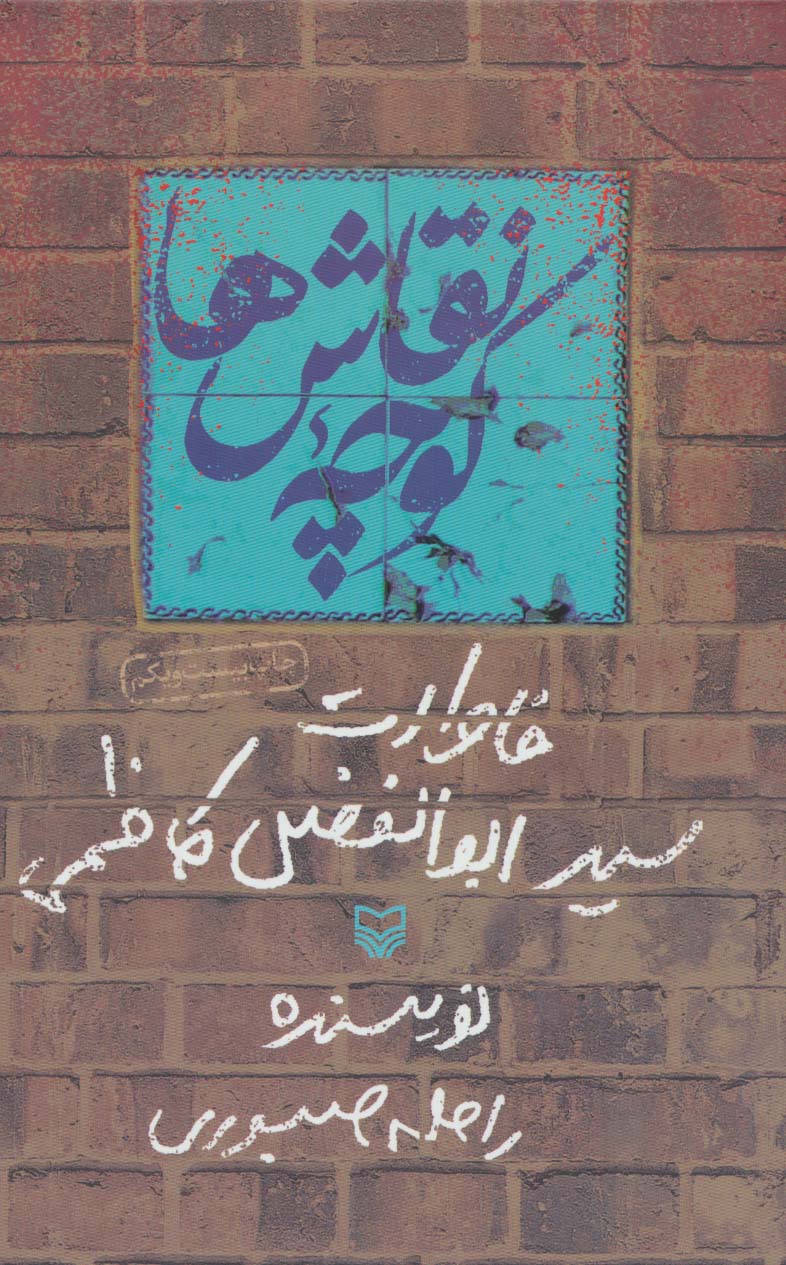 کوچهٔ نقاش‌ها
چاپ بیست‌ویکم
خاطرات
سید ابوالفضل کاظمی
نویسنده
راحله صبوری